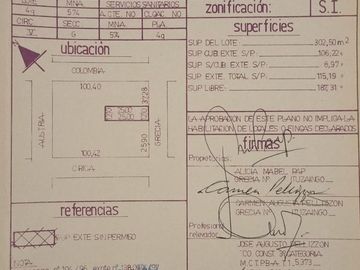 MNA SERVICIOS SANITARIOS
4g 57k A CTE. NO CLOAC NO
CIRC SECC MNA PLA
V G 57k 4g
zonificación: S.I.
superficies
SUP DEL LOTE 302,50m²
SUP CUB. EXT S/P 106,22
SUP S/CUB EXTE S/P 6,97
SUP. EXTE. TOTAL S/P 115,19
SUP LIBRE 187,31
ubicación
COLOMBIA
100,40
AUSTRIA
37.28
25.90
GRECIA
100,42
CRICA
LA APROBACION DE ESTE PLANO NO IMPLICA LA
HABILITACION DE LOCALES O FINCAS DECLARADOS
firmas
Propietarios:
ALICIA MABEL PAP
GRECIA Nº ITUZAINGO
CARMEN AUGUSTO PELLIZZON
GRECIA Nº ITUZAINGO
Profesional
relevador:
JOSE AUGUSTO PELLIZZON
CO CONST 3ª CATEGORIA
M.C.T.P.B.A. T.I. 5.373
referencias
SUP EXTE SIN PERMISO
NOTA